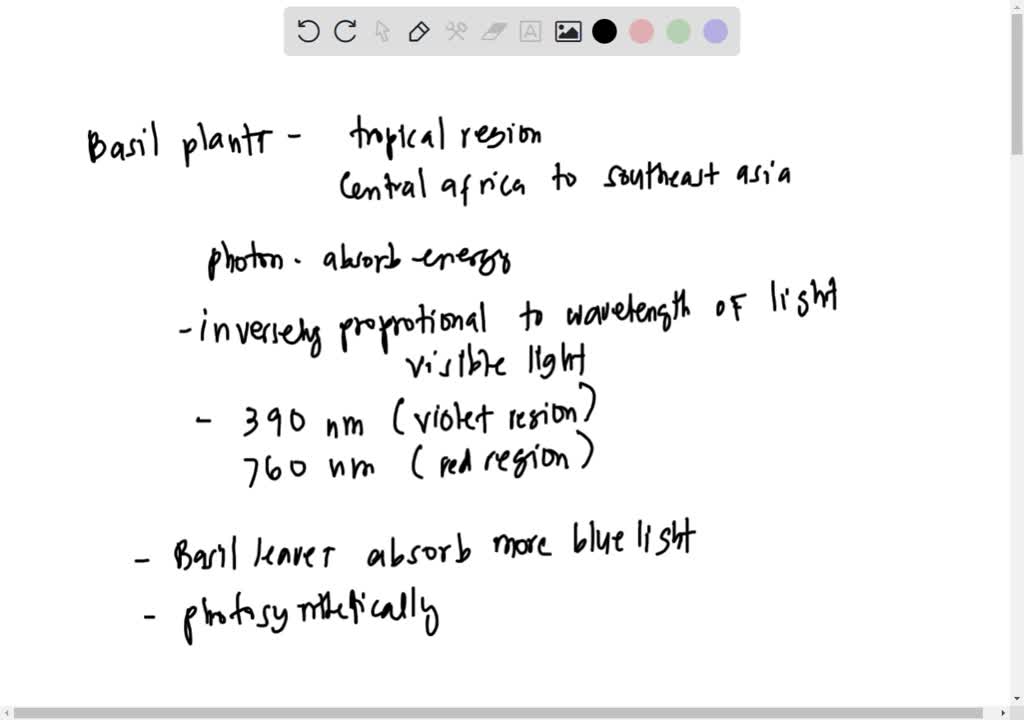 Basil plants - tropical region
Central africa to southeast asia
photon. absorb energy
- inversely proprotional to wavelength of light
visible light
- 390 nm (violet region)
760 nm (red region)
- Basil leaves absorb more blue light
- photosynthetically